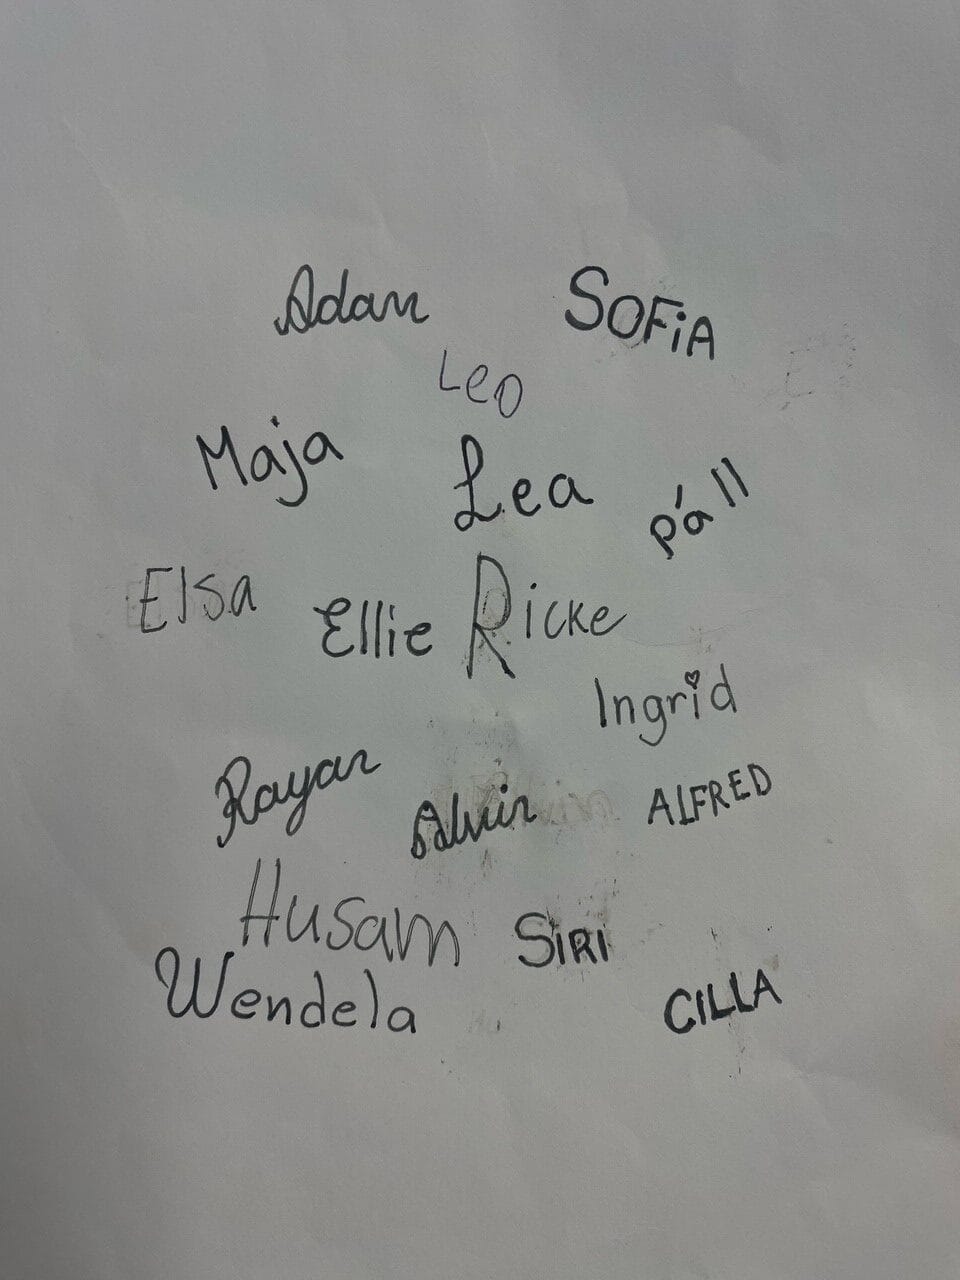 Adam
SOFiA
Leo
Maja
Lea
páll
Elsa
Ellie
Ricke
Ingrid
Rayan
Alvin
ALFRED
Husam
SIRI
Wendela
CILLA